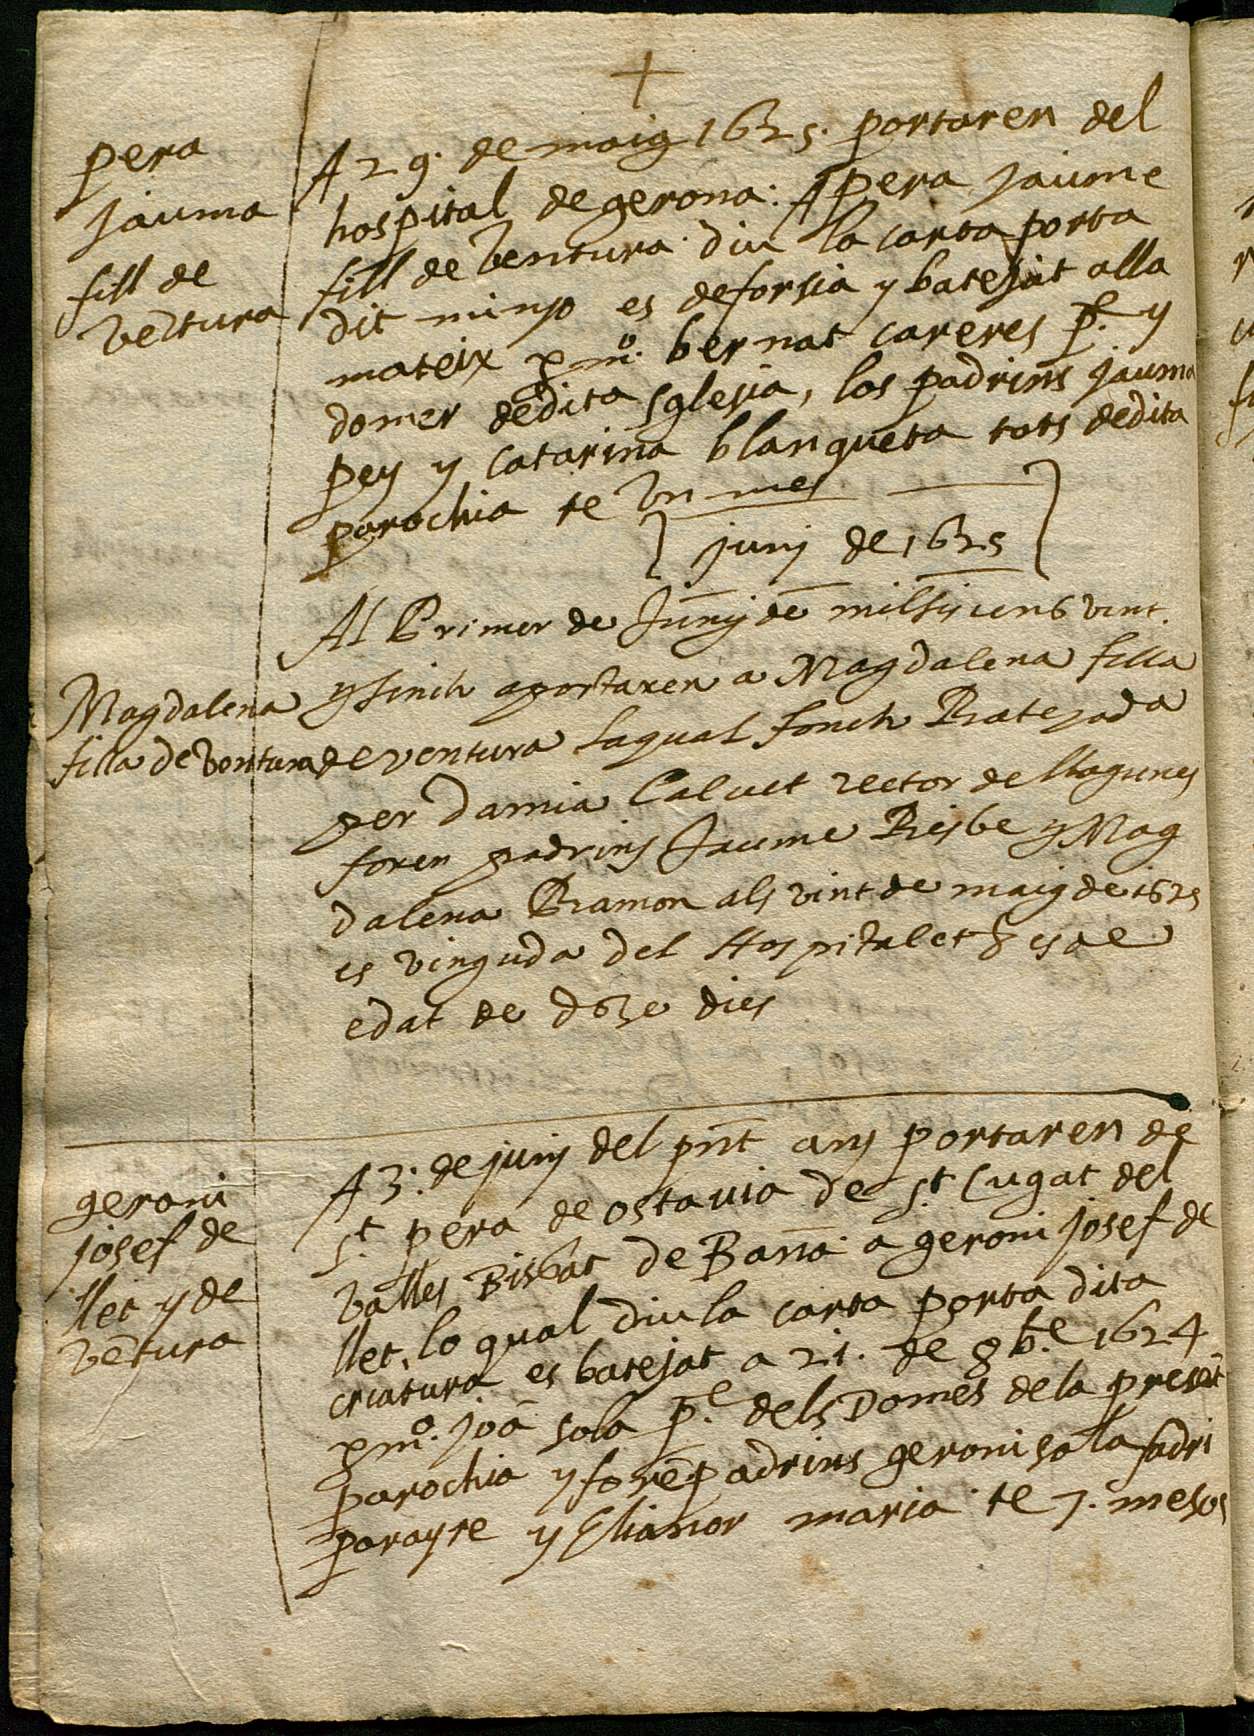 +
pera
jauma
fill de
ventura
A 29. de maig 1625. portaren del
hospital de gerona: A pera jaume
fill de ventura diu la carta porta
dit minyo es de forsia y batejat alla
mateix p mº. bernat careres p.^e y
domer de dita sglesia, los padrins jauma
pey y catarina blanqueta tots de dita
parochia te vn mes
juny de 1625
Magdalena
filla de ventura
Al Primer de Juny de mil sis cens vint
y sinch aportaren a Magdalena filla
de ventura laqual fonch Batejada
per Damia Calvet rector de llagunes
foren padrins Jaume Risbe y Mag
dalena Ramon als vint de maig de 1625
es vinguda del Hospitalet & es de
edat de dotze dies
geroni
josef de
llet y de
vētura
A 3. de juny del pnt any portaren de
S.^t pera de octavia de S.^t Cugat del
valles Bisbat de Barna a geroni josef de
llet, lo qual diu la carta porta dita
criatura es batejat a 21. de 8b.^e 1624
p mº. joā sola p.^e dels Domes de la presēt
parochia y forē padrins geroni sala fadri
parayre y Elianor maria te 7. mesos